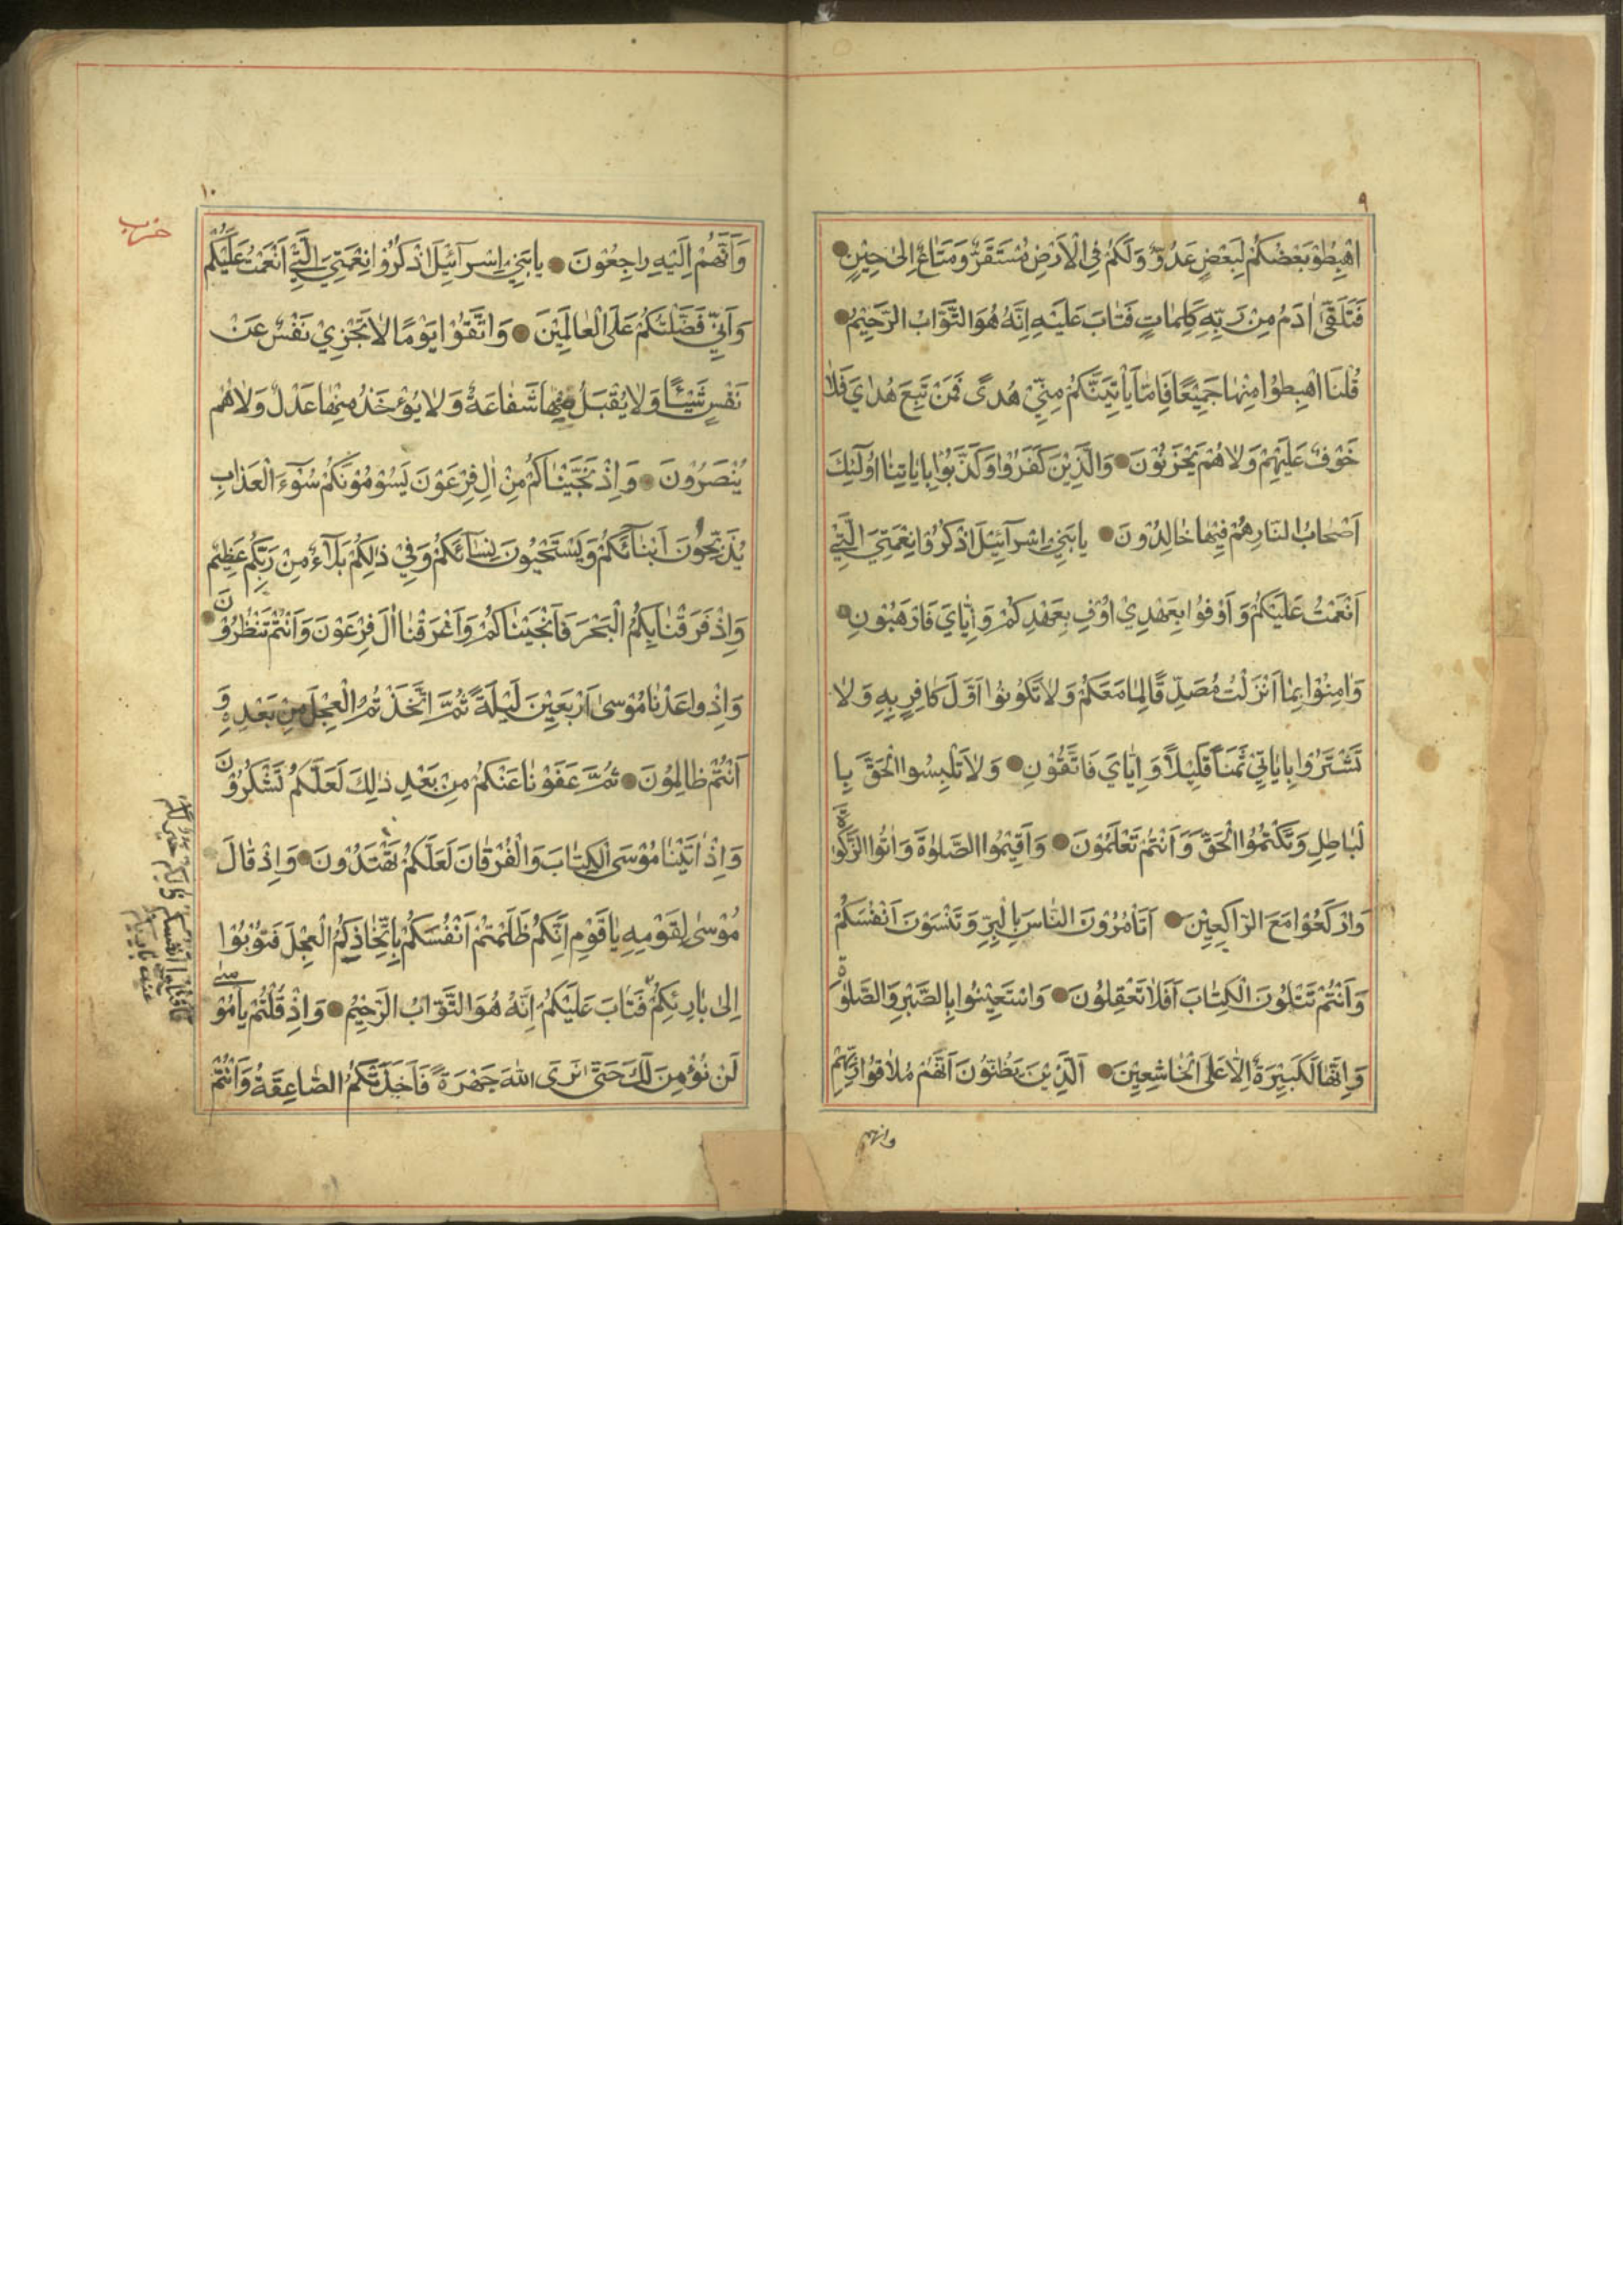 ٩
اهْبِطُوْا بَعْضُكُمْ لِبَعْضٍ عَدُوٌّ وَلَكُمْ فِي الْاَرْضِ مُسْتَقَرٌّ وَمَتَاعٌ اِلىٰ حِيْنٍ
فَتَلَقّىٰ اٰدَمُ مِنْ رَبِّهِ كَلِمَاتٍ فَتَابَ عَلَيْهِ اِنَّهُ هُوَ التَّوَّابُ الرَّحِيْمُ
قُلْنَا اهْبِطُوْا مِنْهَا جَمِيْعًا فَاِمَّا يَاْتِيَنَّكُمْ مِنِّيْ هُدًى فَمَنْ تَبِعَ هُدَايَ فَلَا
خَوْفٌ عَلَيْهِمْ وَلَا هُمْ يَحْزَنُوْنَ وَالَّذِيْنَ كَفَرُوْا وَكَذَّبُوْا بِاٰيَاتِنَا اُولٰٓئِكَ
اَصْحَابُ النَّارِ هُمْ فِيْهَا خَالِدُوْنَ يَا بَنِيْ اِسْرَآئِيْلَ اذْكُرُوْا نِعْمَتِيَ الَّتِيْ
اَنْعَمْتُ عَلَيْكُمْ وَاَوْفُوْا بِعَهْدِيْ اُوْفِ بِعَهْدِكُمْ وَاِيَّايَ فَارْهَبُوْنِ
وَاٰمِنُوْا بِمَا اَنْزَلْتُ مُصَدِّقًا لِمَا مَعَكُمْ وَلَا تَكُوْنُوْا اَوَّلَ كَافِرٍ بِهِ وَلَا
تَشْتَرُوْا بِاٰيَاتِيْ ثَمَنًا قَلِيْلًا وَاِيَّايَ فَاتَّقُوْنِ وَلَا تَلْبِسُوا الْحَقَّ بِا
لْبَاطِلِ وَتَكْتُمُوا الْحَقَّ وَاَنْتُمْ تَعْلَمُوْنَ وَاَقِيْمُوا الصَّلٰوةَ وَاٰتُوا الزَّكٰوةَ
وَارْكَعُوْا مَعَ الرَّاكِعِيْنَ اَتَاْمُرُوْنَ النَّاسَ بِالْبِرِّ وَتَنْسَوْنَ اَنْفُسَكُمْ
وَاَنْتُمْ تَتْلُوْنَ الْكِتَابَ اَفَلَا تَعْقِلُوْنَ وَاسْتَعِيْنُوْا بِالصَّبْرِ وَالصَّلٰوةِ
وَاِنَّهَا لَكَبِيْرَةٌ اِلَّا عَلَى الْخَاشِعِيْنَ اَلَّذِيْنَ يَظُنُّوْنَ اَنَّهُمْ مُلَاقُوْا رَبِّهِمْ
وانهم
١٠
حزب
وَاَنَّهُمْ اِلَيْهِ رَاجِعُوْنَ يَا بَنِيْ اِسْرَآئِيْلَ اذْكُرُوْا نِعْمَتِيَ الَّتِيْ اَنْعَمْتُ عَلَيْكُمْ
وَاَنِّيْ فَضَّلْتُكُمْ عَلَى الْعَالَمِيْنَ وَاتَّقُوْا يَوْمًا لَا تَجْزِيْ نَفْسٌ عَنْ
نَفْسٍ شَيْئًا وَلَا يُقْبَلُ مِنْهَا شَفَاعَةٌ وَلَا يُؤْخَذُ مِنْهَا عَدْلٌ وَلَا هُمْ
يُنْصَرُوْنَ وَاِذْ نَجَّيْنَاكُمْ مِنْ اٰلِ فِرْعَوْنَ يَسُوْمُوْنَكُمْ سُوْٓءَ الْعَذَابِ
يُذَبِّحُوْنَ اَبْنَآئَكُمْ وَيَسْتَحْيُوْنَ نِسَآئَكُمْ وَفِيْ ذٰلِكُمْ بَلَآءٌ مِنْ رَبِّكُمْ عَظِيْمٌ
وَاِذْ فَرَقْنَا بِكُمُ الْبَحْرَ فَاَنْجَيْنَاكُمْ وَاَغْرَقْنَا اٰلَ فِرْعَوْنَ وَاَنْتُمْ تَنْظُرُوْنَ
وَاِذْ وَاعَدْنَا مُوْسىٰ اَرْبَعِيْنَ لَيْلَةً ثُمَّ اتَّخَذْتُمُ الْعِجْلَ مِنْ بَعْدِهِ وَ
اَنْتُمْ ظَالِمُوْنَ ثُمَّ عَفَوْنَا عَنْكُمْ مِنْ بَعْدِ ذٰلِكَ لَعَلَّكُمْ تَشْكُرُوْنَ
وَاِذْ اٰتَيْنَا مُوْسَى الْكِتَابَ وَالْفُرْقَانَ لَعَلَّكُمْ تَهْتَدُوْنَ وَاِذْ قَالَ
مُوْسىٰ لِقَوْمِهِ يَا قَوْمِ اِنَّكُمْ ظَلَمْتُمْ اَنْفُسَكُمْ بِاتِّخَاذِكُمُ الْعِجْلَ فَتُوْبُوْا
اِلىٰ بَارِئِكُمْ فَتَابَ عَلَيْكُمْ اِنَّهُ هُوَ التَّوَّابُ الرَّحِيْمُ وَاِذْ قُلْتُمْ يَا مُوْسىٰ
لَنْ نُؤْمِنَ لَكَ حَتّىٰ نَرَى اللهَ جَهْرَةً فَاَخَذَتْكُمُ الصَّاعِقَةُ وَاَنْتُمْ
فاقتلوا انفسكم ذلكم خير لكم
عند بارئكم